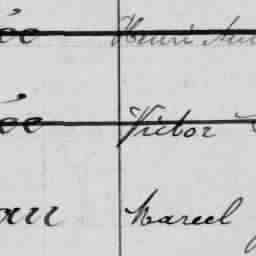 ée Henri
ée Victor
au Marcel